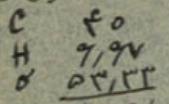 C ۴۰
H ۶,۶۷
O ۵۳,۳۳